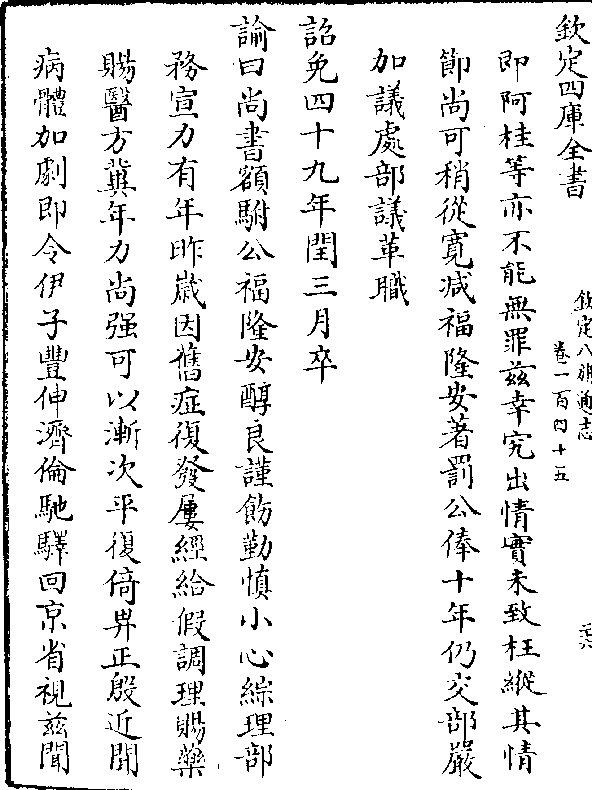 欽定四庫全書
欽定八旗通志
卷一百四十五
二六
即阿桂等亦不能無罪兹幸究出情實未致枉縱其情
節尚可稍從寛減福隆安著罰公俸十年仍交部嚴
加議處部議革職
詔免四十九年閏三月卒
諭曰尚書額駙公福隆安醇良謹飭勤慎小心綜理部
務宣力有年昨嵗因舊症復發屢經給假調理賜藥
賜醫方冀年力尚强可以漸次平復倚畀正殷近聞
病體加劇即令伊子豐伸濟倫馳驛回京省視兹聞